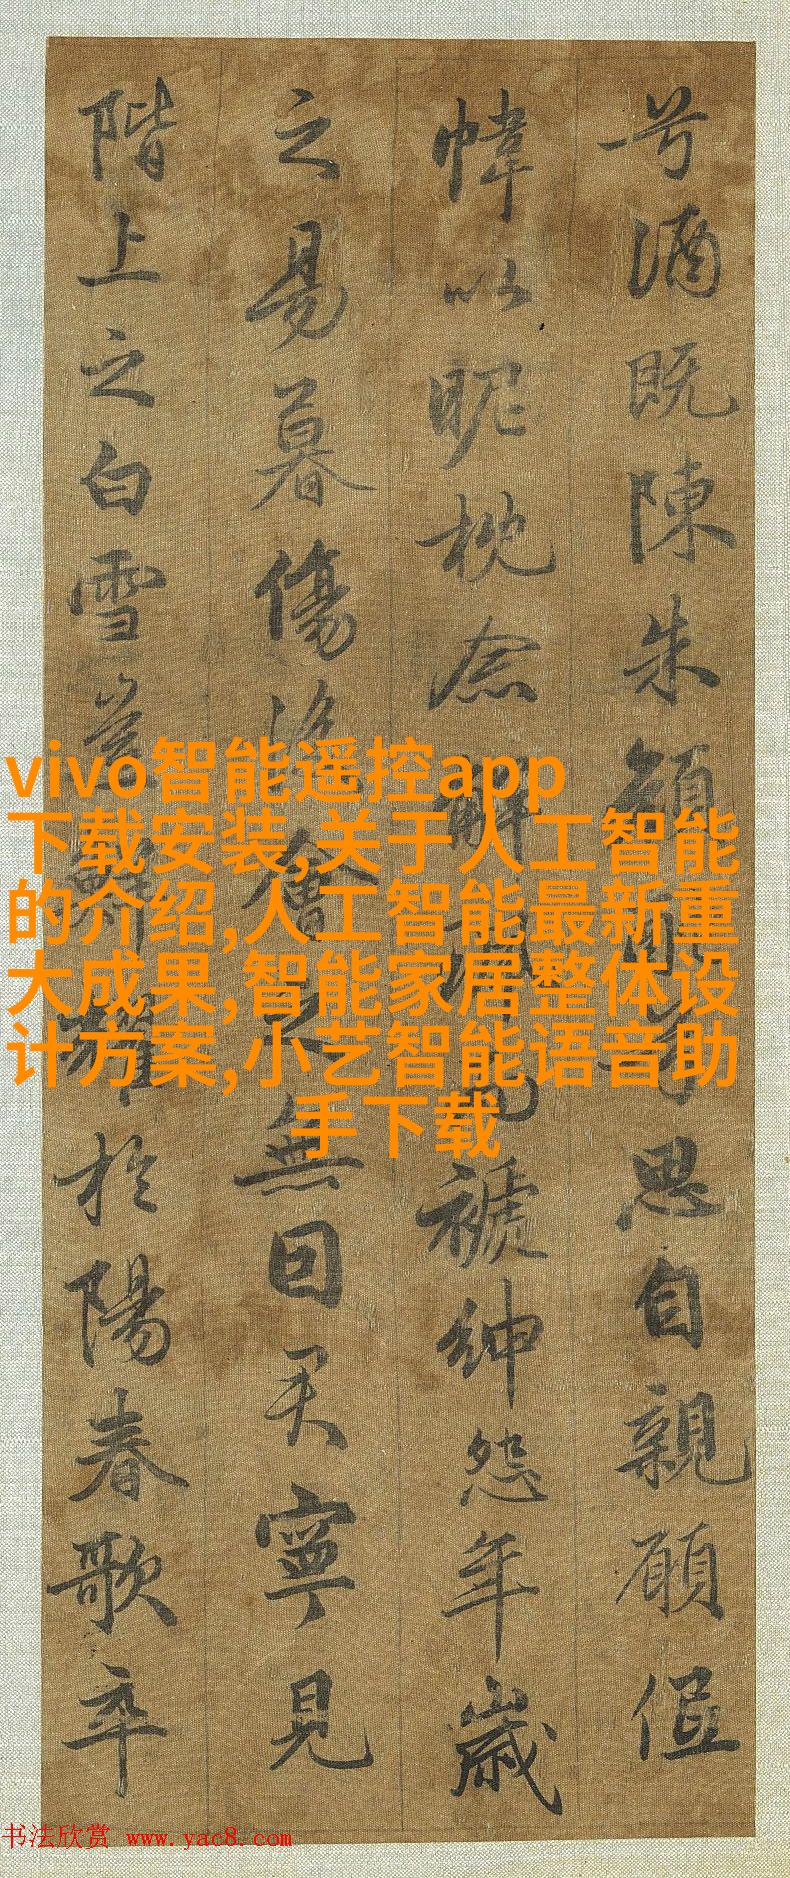 兮酒既陳朱顏兮思自親願低
幃以昵枕念解而褫紳怨年歲
之易暮傷後會之無因君寧見
階上之白雪豈鮮耀於陽春歌卒
vivo智能遥控app
下载安装,关于人工智能
的介绍,人工智能最新重
大成果,智能家居整体设
计方案,小艺智能语音助
手下载
书法欣赏 www.yac8.com